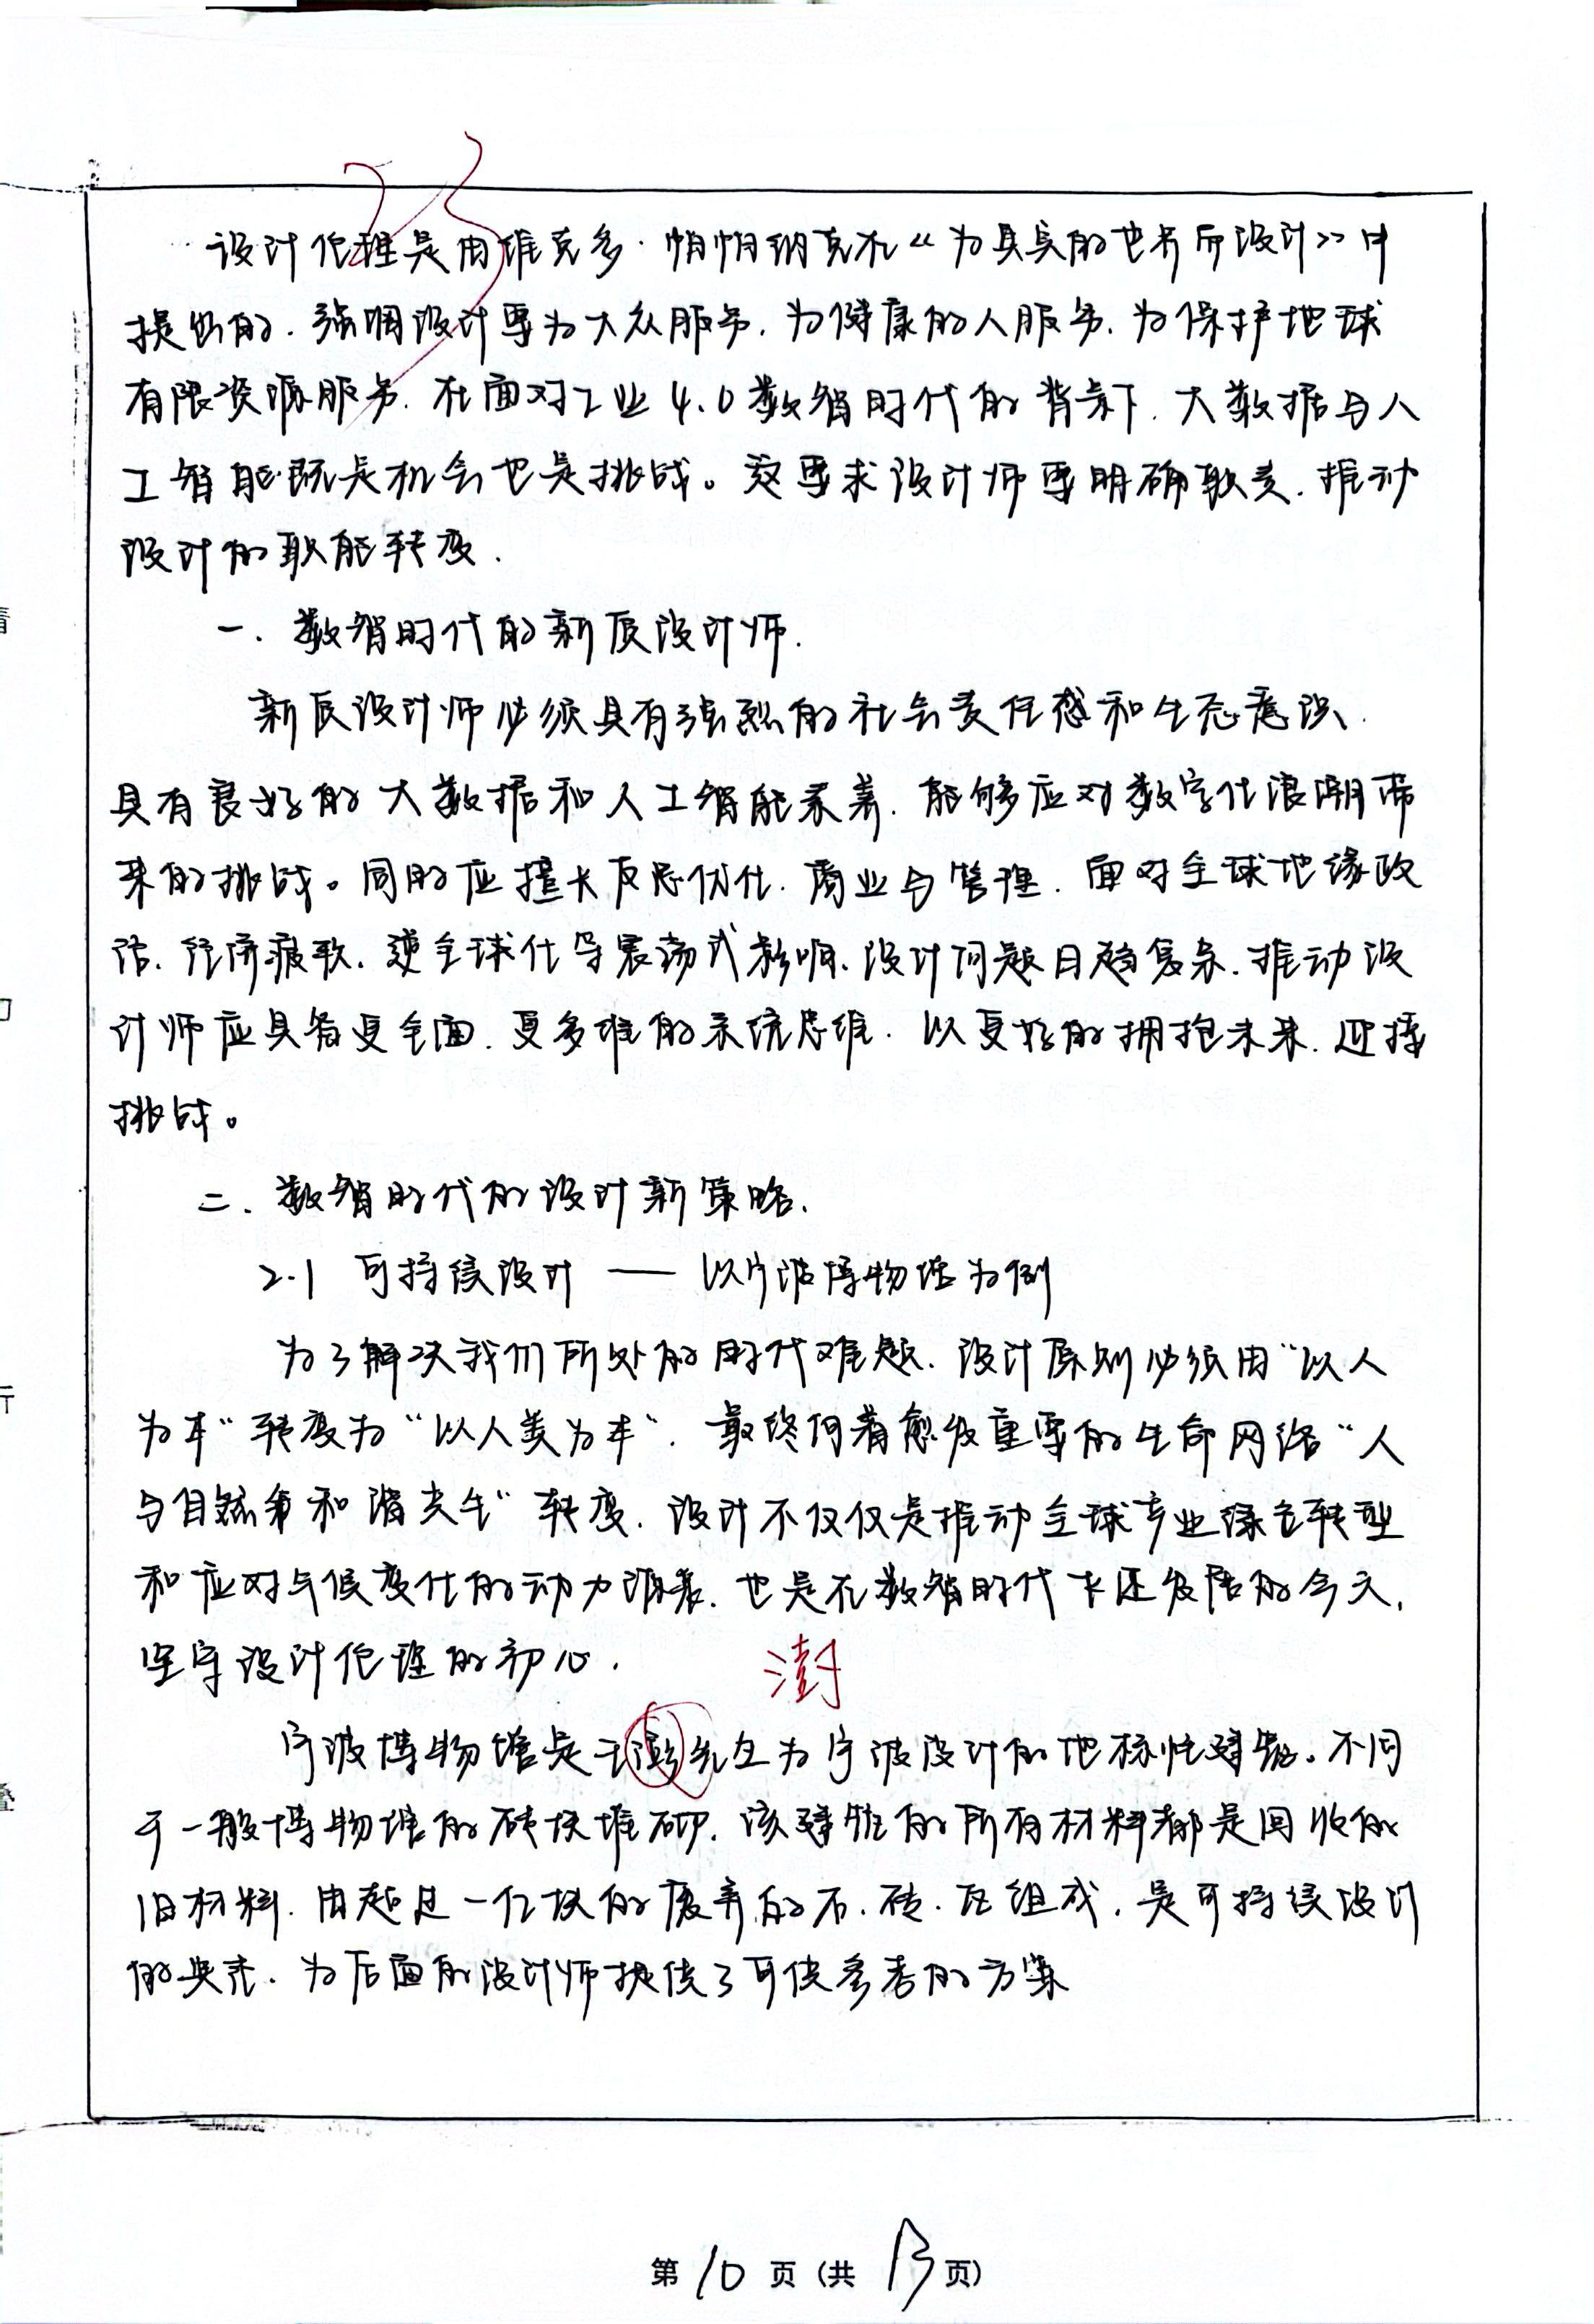 23
设计伦理是由维克多·帕帕纳克在《为真实的世界而设计》中
提出的.强调设计要为大众服务.为健康的人服务.为保护地球
有限资源服务.在面对工业4.0数智时代的背景下.大数据与人
工智能既是机会也是挑战。这要求设计师要明确职责.推动
设计的职能转变.
一.数智时代的新质设计师.
新质设计师必须具有强烈的社会责任感和生态意识.
具有良好的大数据和人工智能素养.能够应对数字化浪潮带
来的挑战。同时应擅长反思优化.商业与管理.面对全球地缘政
治.经济疲软.逆全球化等震荡式影响.设计问题日趋复杂.推动设
计师应具备更全面.更多维的系统思维.以更好的拥抱未来.迎接
挑战。
二.数智时代的设计新策略.
2.1 可持续设计 —— 以宁波博物馆为例
为了解决我们所处的时代难题.设计原则必须由“以人
为本”转变为“以人类为本”.最终向着愈发重要的生命网络“人
与自然和谐共生”转变.设计不仅仅是推动全球产业绿色转型
和应对气候变化的动力源泉.也是在数智时代下还发展的今天,
坚守设计伦理的初心.
澍
宁波博物馆是王澍先生为宁波设计的地标性建筑。不同
于一般博物馆的砖块堆砌.该建筑的所有材料都是回收的
旧材料.由超过一亿块的废弃的石.砖.瓦组成.是可持续设计
的典范.为后面的设计师提供了可供参考的方案
第10页(共13页)